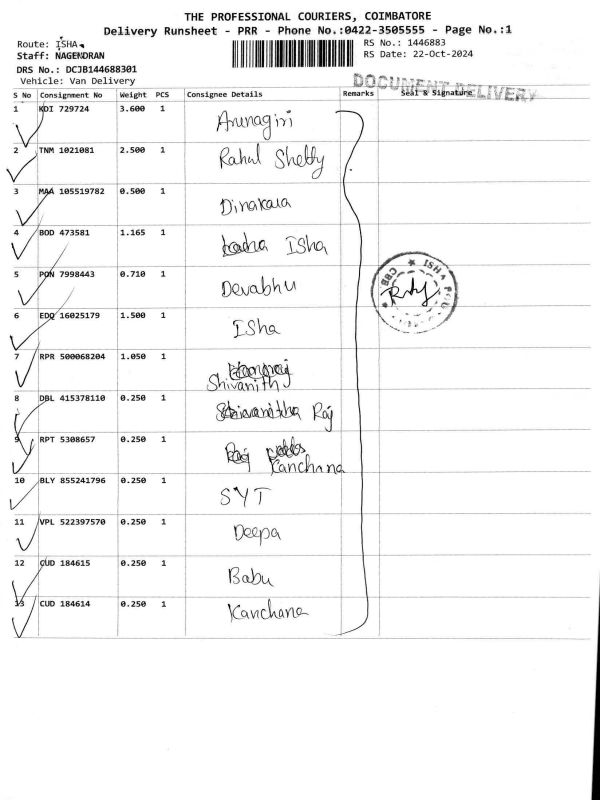 THE PROFESSIONAL COURIERS, COIMBATORE
Delivery Runsheet - PRR - Phone No.:0422-3505555 - Page No.:1
Route: ISHA
RS No.: 1446883
Staff: NAGENDRAN
RS Date: 22-Oct-2024
DRS No.: DCJB144688301
Vehicle: Van Delivery
DOCUMENT DELIVERY
S No Consignment No Weight PCS Consignee Details Remarks Seal & Signature
1 KDI 729724 3.600 1 Arunagiri
2 TNM 1021081 2.500 1 Rahul Shetty
3 MAA 105519782 0.500 1 Dinakara
4 BOD 473581 1.165 1 Isha
5 PON 7998443 0.710 1 Devabhu
ISHA
CBB
6 EDQ 16025179 1.500 1 Isha
7 RPR 500068204 1.050 1
Shivanith
8 DBL 415378110 0.250 1 Raj
9 RPT 5308657 0.250 1
Kanchana
10 BLY 855241796 0.250 1 SYT
11 VPL 522397570 0.250 1 Deepa
12 CUD 184615 0.250 1 Babu
13 CUD 184614 0.250 1 Kanchana